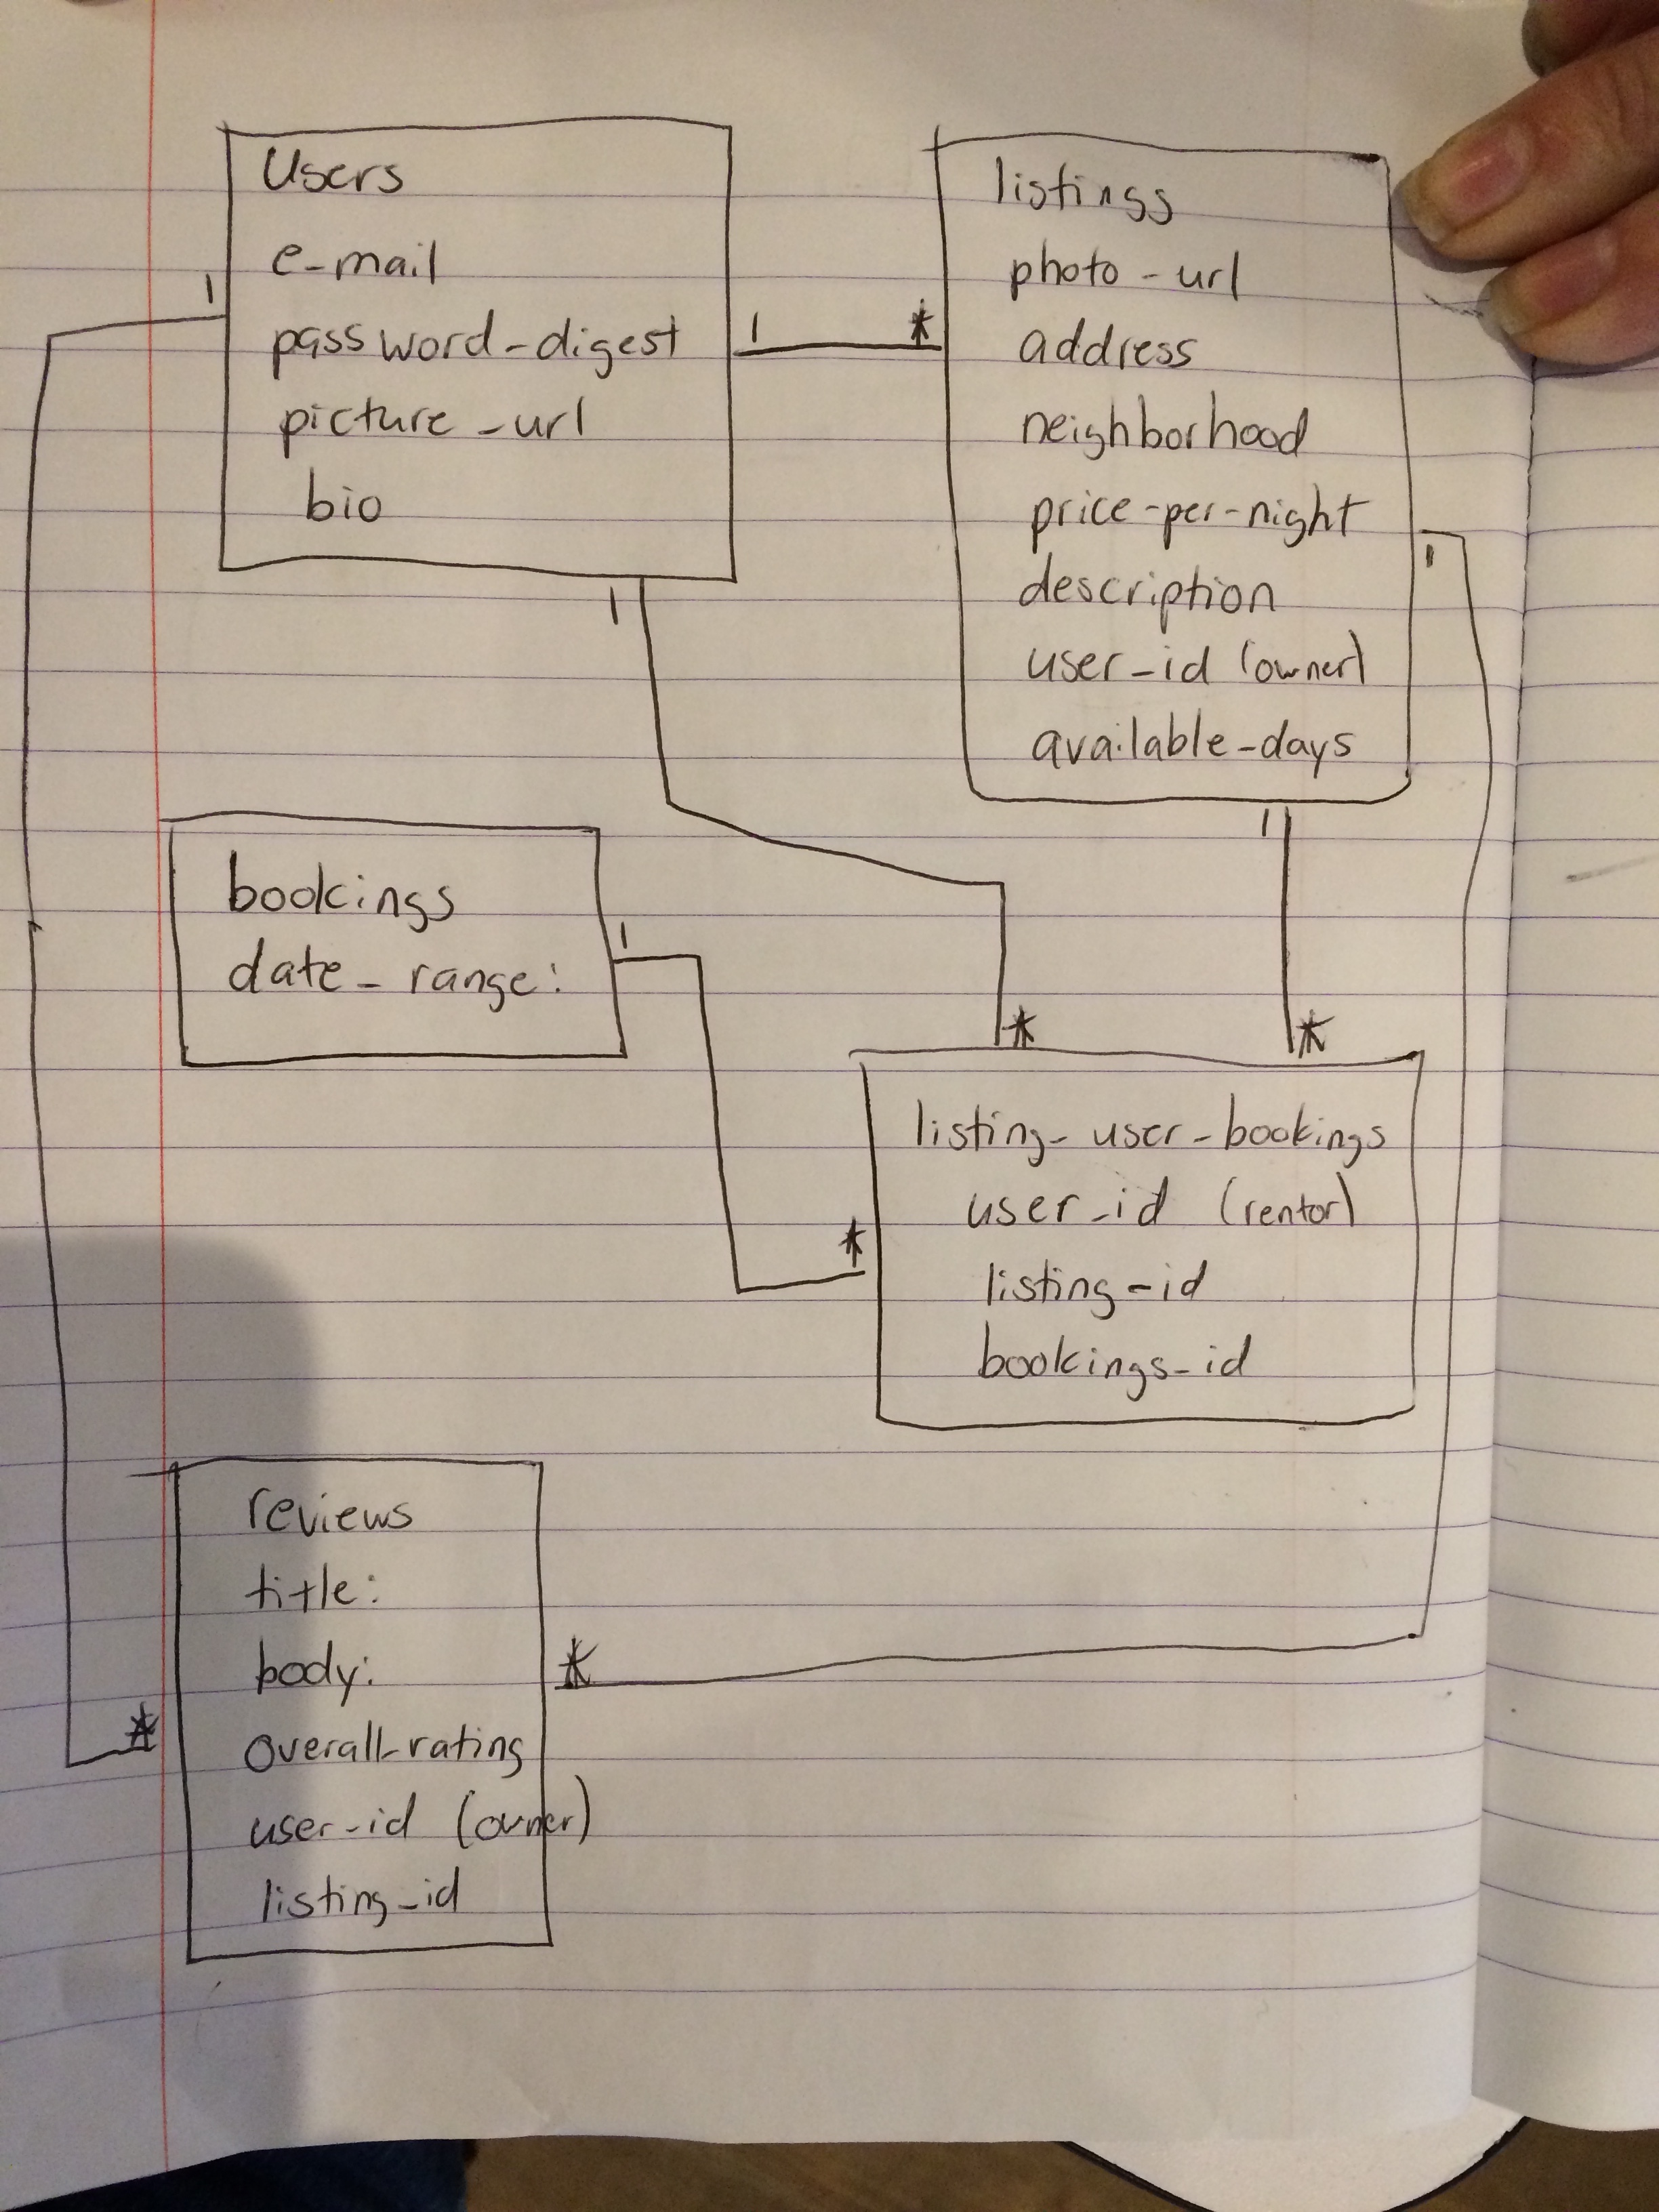 Users
e-mail
password-digest
picture-url
bio
1
1
*
1
listings
photo-url
address
neighborhood
price-per-night
description
user-id (owner)
available-days
1
1
bookings
date-range:
1
*
*
*
listing-user-bookings
user-id (rentor)
listing-id
bookings-id
reviews
title:
body:
overall-rating
user-id (owner)
listing-id
*
*